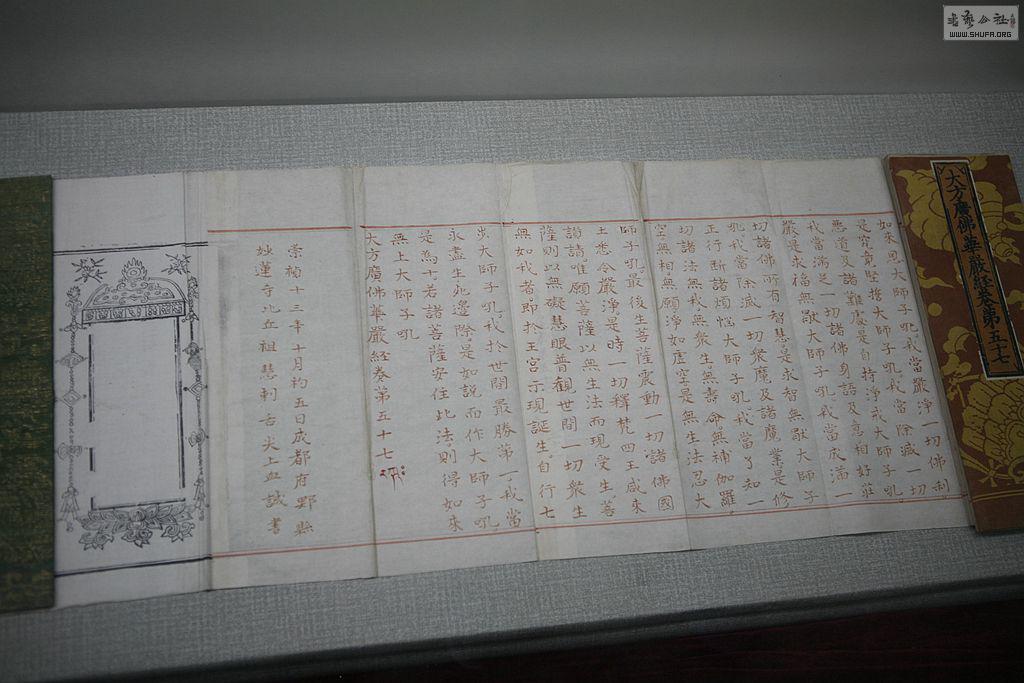 大方廣佛華嚴經卷第五十七
如來思大師子吼我當嚴淨一切佛刹
是究竟堅誓大師子吼我當除滅一切
惡道及諸難處是自持淨戒大師子吼
我當滿足一切諸佛身語及意相好莊
嚴是求福無厭大師子吼我當成滿一
切諸佛所有智慧是求智無厭大師子
吼我當除滅一切衆魔及諸魔業是修
正行斷諸煩惱大師子吼我當了知一
切諸法無我無衆生無壽命無補伽羅
空無相無願淨如虛空是無生法忍大
師子吼最後生菩薩震動一切諸佛國
土悉令嚴淨是時一切釋梵四王咸來
讃請唯願菩薩以無生法而現受生菩
薩則以無礙慧眼普觀世間一切衆生
無如我者即於王宮示現誕生自行七
步大師子吼我於世間最勝第一我當
永盡生死邊際是如說而作大師子吼
是爲十若諸菩薩安住此法則得如來
無上大師子吼
大方廣佛華嚴經卷第五十七
崇禎十三年十月初五日成都府郫縣
妙蓮寺比丘祖慧刺舌尖上血誠書
書藝公社
WWW.SHUFA.ORG